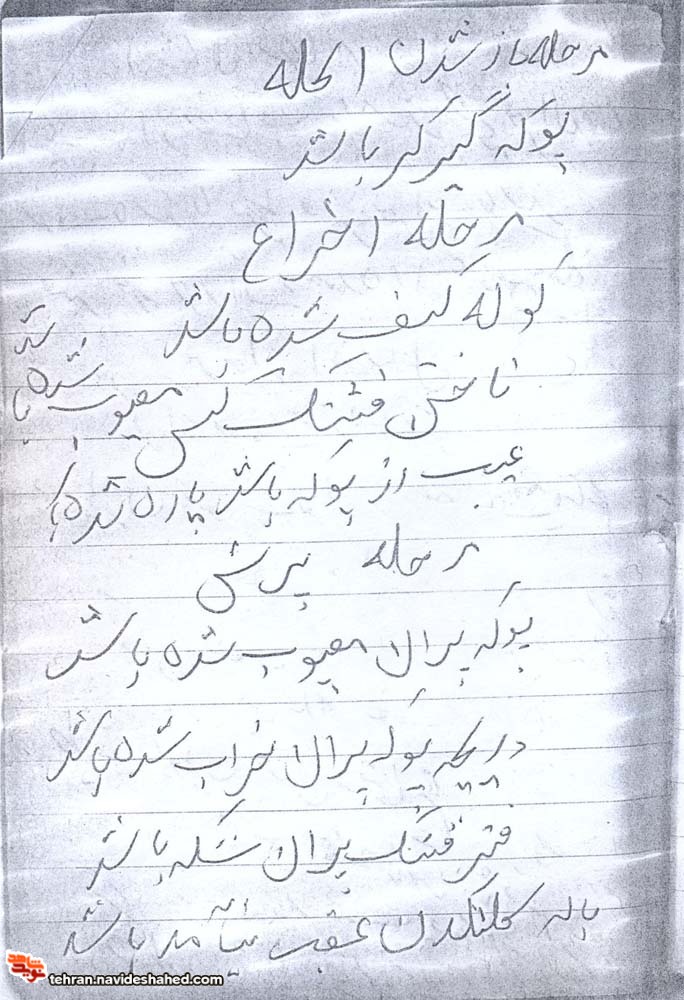 مرحله باز شدن اسلحه
پوکه گیر کر باشد
مرحله اخراج
لوله کثیف شده باشد
ناخن فشنگ کش معیوب شده باشد
عیب از پوکه باشد پاره شده
مرحله پرش
پوکه پران معیوب شده باشد
دریچه پوکه پران خراب شده باشد
فنر فشنگ پران شکسته باشد
گلنگدن عقب نیآمد باشد
نوید شاهد
tehran.navideshahed.com